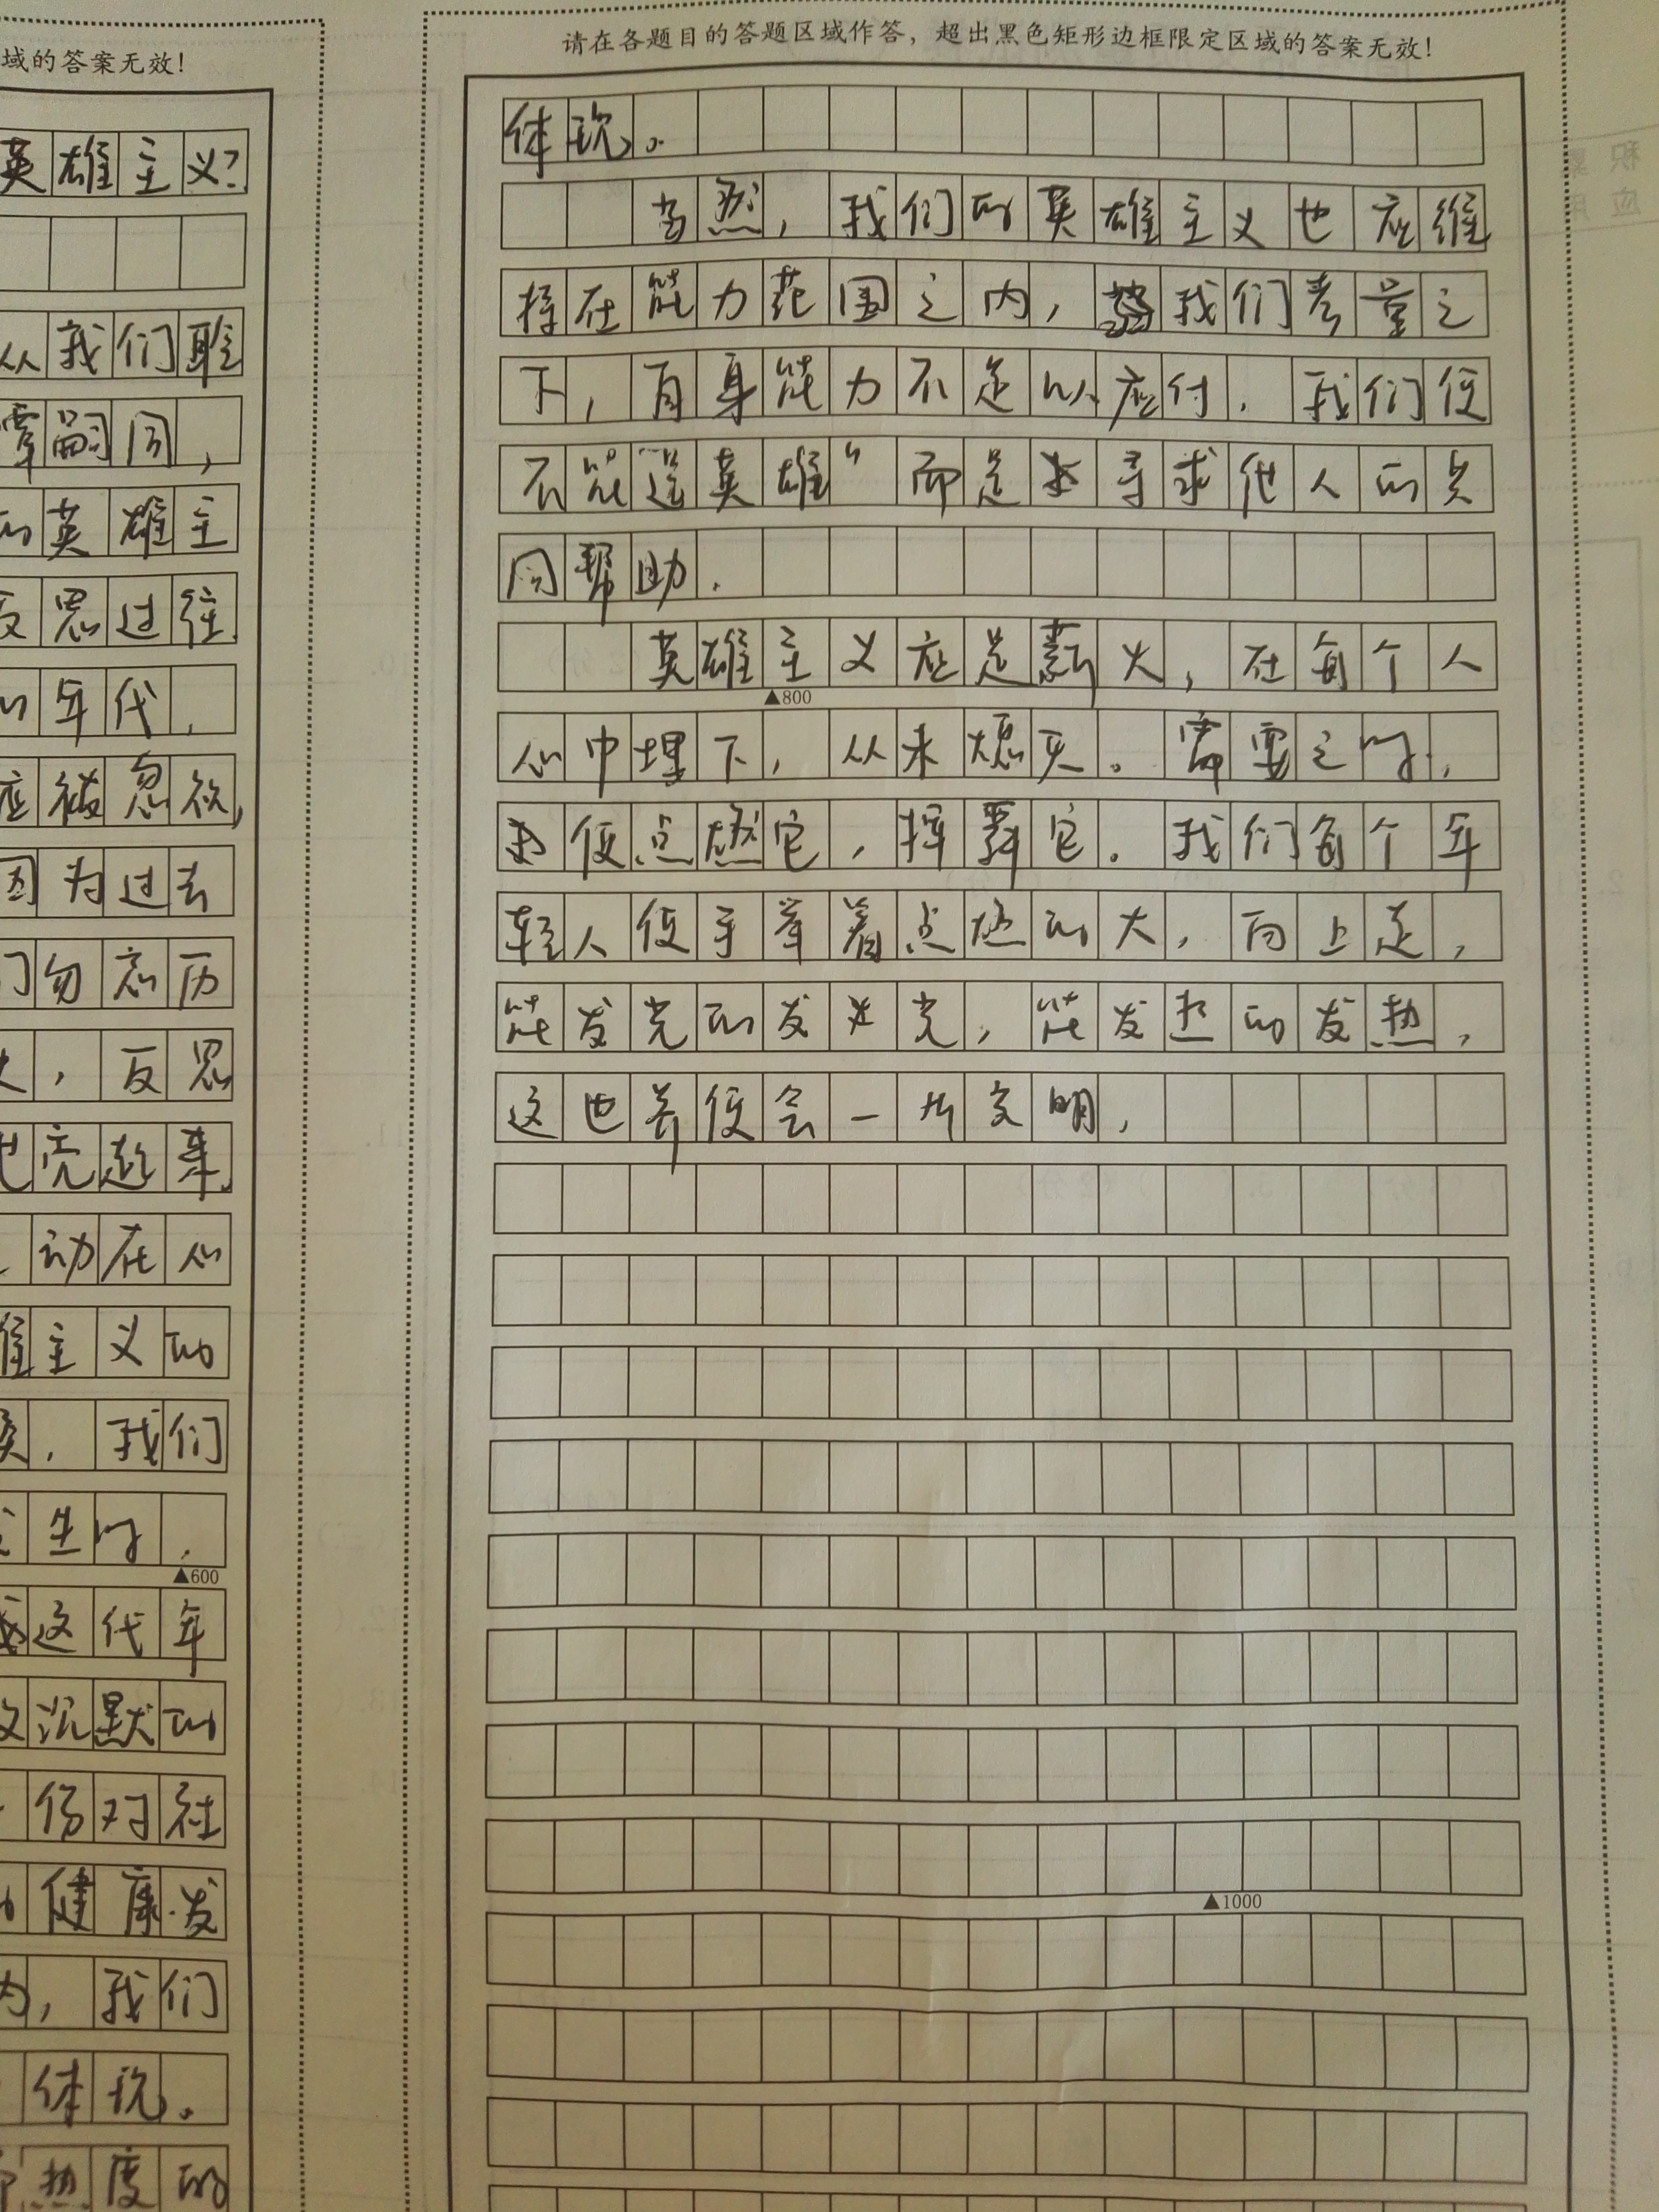 域的答案无效!
英雄主义?
从我们
覃嗣同,
的英雄主
反思过往
的年代,
应被忽视,
因为过去
们勿忘历
,反思
也亮起来.
动在心
雄主义的
,我们
生时,
▲600
这代年
沉默的
份对社
健康发
内,我们
体现。
热度的
请在各题目的答题区域作答,超出黑色矩形边框限定区域的答案无效!
体现。
当然,我们的英雄主义也应维
持在能力范围之内,我们考量之
下,自身能力不足以应付,我们便
不能逞英雄"而是寻求他人的共
同帮助.
英雄主义应是薪火,在每个人
▲800
心中埋下,从未熄灭。需要之时,
便点燃它,挥舞它。我们每个年
轻人便手举着点燃的火,向上走,
能发光的发光,能发热的发热,
这也并便会一片文明,
▲1000